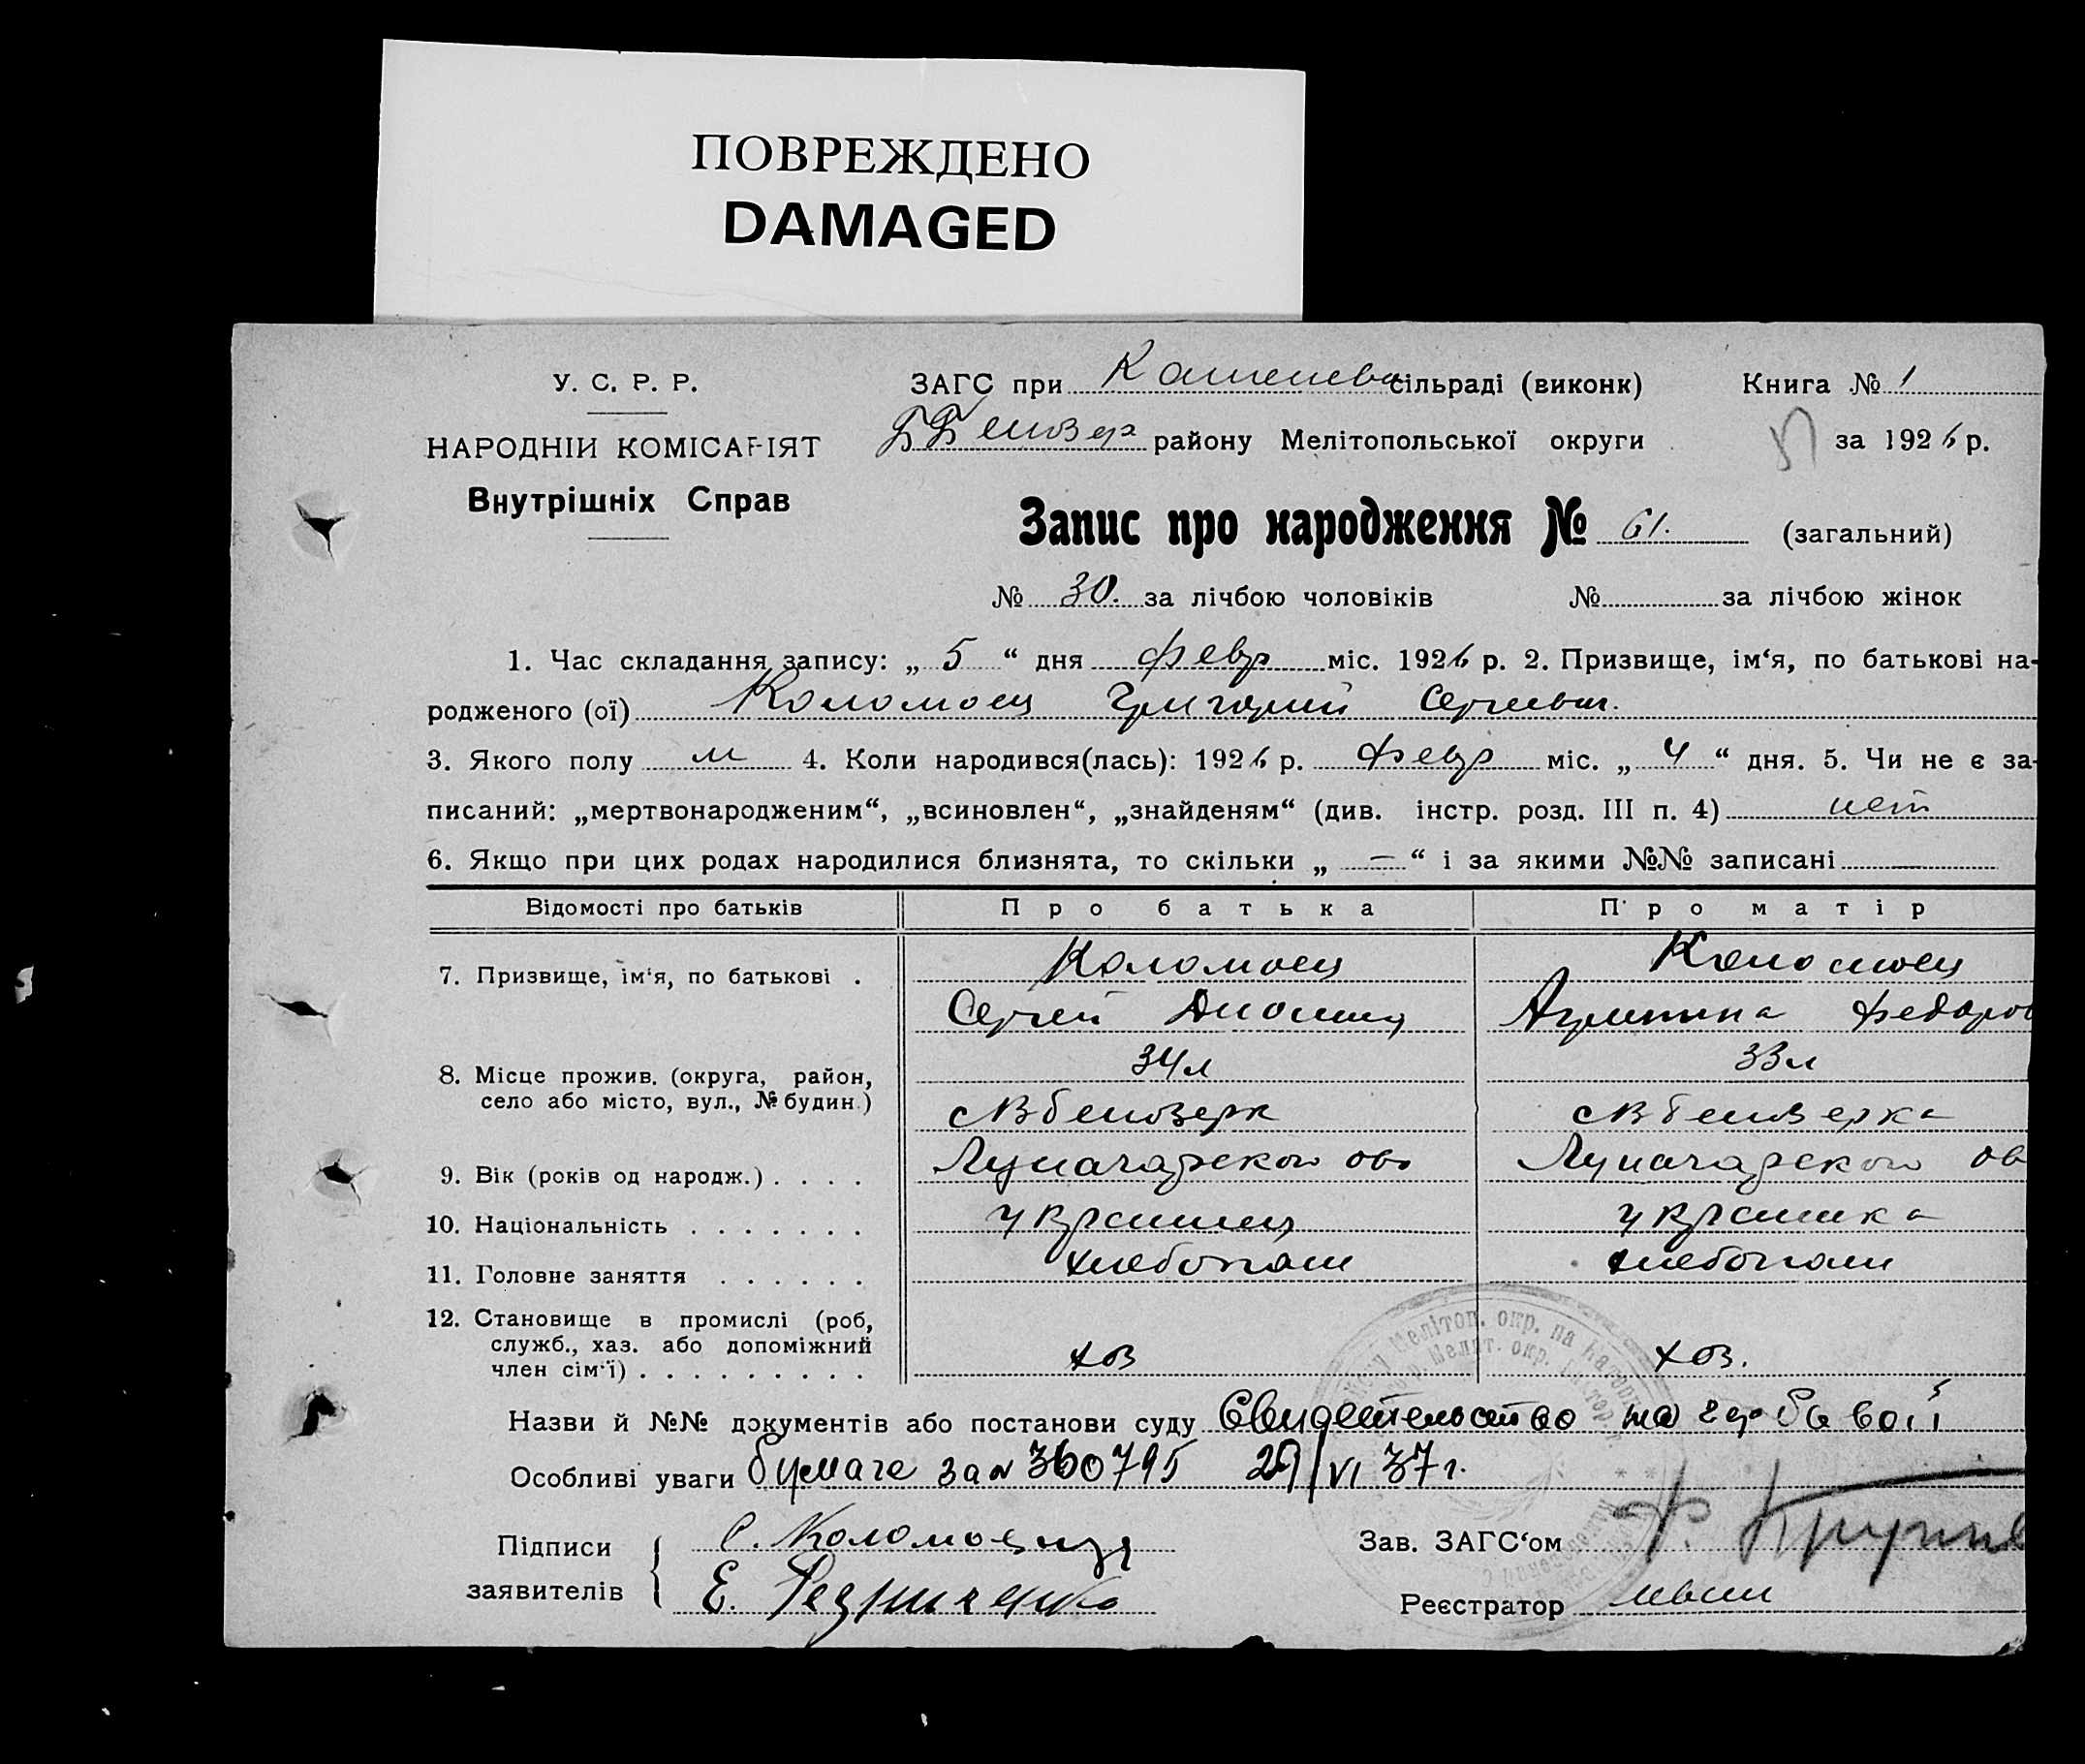 ПОВРЕЖДЕНО
DAMAGED
У. С. Р. Р.
НАРОДНІЙ КОМІСАРІЯТ
Внутрішніх Справ
ЗАГС при сільраді (виконк) Книга № 1
району Мелітопольської округи за 1926 р.
Запис про народження № 61. (загальний)
№ 30. за лічбою чоловіків № за лічбою жінок
1. Час складання запису: „ 5 “ дня февр міс. 1926 р. 2. Призвище, ім‘я, по батькові на-
родженого (ої) Коломоец Григорий Сергеевич.
3. Якого полу м 4. Коли народився(лась): 1926 р. февр міс. „ 4 “ дня. 5. Чи не є за-
писаний: „мертвонародженим“, „всиновлен“, „знайденям“ (див. інстр. розд. III п. 4) нет
6. Якщо при цих родах народилися близнята, то скільки „ — “ і за якими №№ записані —
Відомості про батьків Про батька Про матір
7. Призвище, ім‘я, по батькові . Коломоец Коломоец
Сергей Федоров
34л 33л
8. Місце прожив. (округа, район,
село або місто, вул., № будин.)
9. Вік (років од народж.) . . . . Луначарского Луначарского
10. Національність . . . . . . . украинец украинка
11. Головне заняття . . . . . . хлебопаш хлебопаш
12. Становище в промислі (роб,
служб., хаз. або допоміжний
член сім‘ї) . . . . . . . . . хоз хоз.
Назви й №№ документів або постанови суду Свидетельство на гербовой
Особливі уваги бумаге за № 360795 29/VI 37г.
Підписи С.
заявителів Е.
Зав. ЗАГС‘ом
Реєстратор